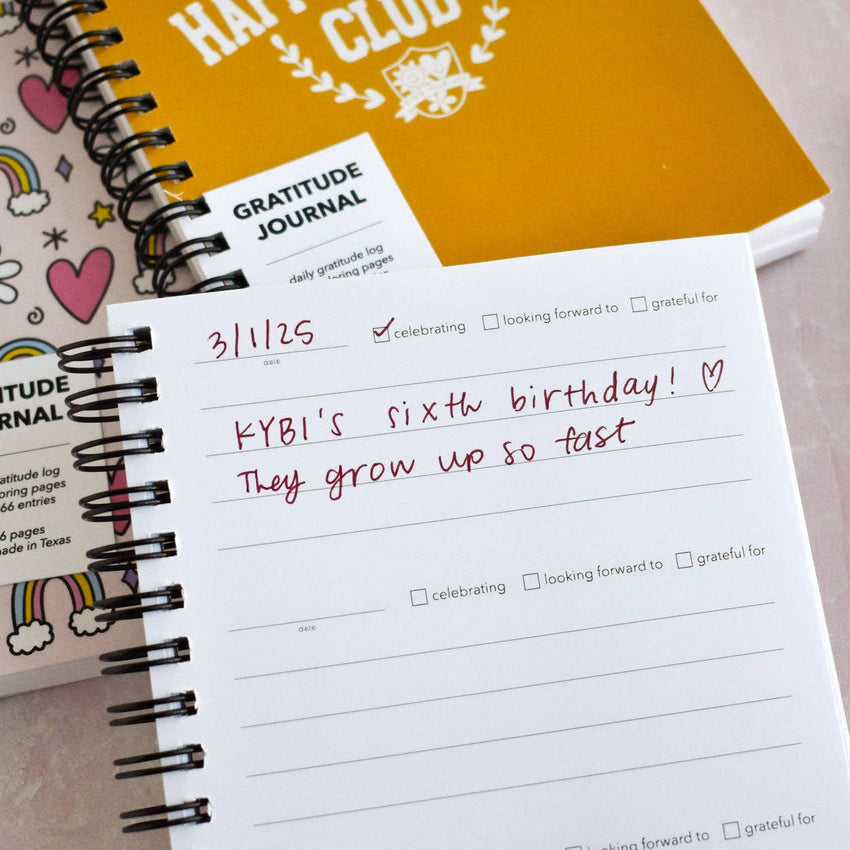 HAPP
CLUB
GRATITUDE
JOURNAL
daily gratitude log
oring pages
ITUDE
RNAL
atitude log
oring pages
66 entries
6 pages
ade in Texas
3/1/25 celebrating looking forward to grateful for
date
KYBI's sixth birthday! ♡
They grow up so fast
celebrating looking forward to grateful for
date
looking forward to grateful for